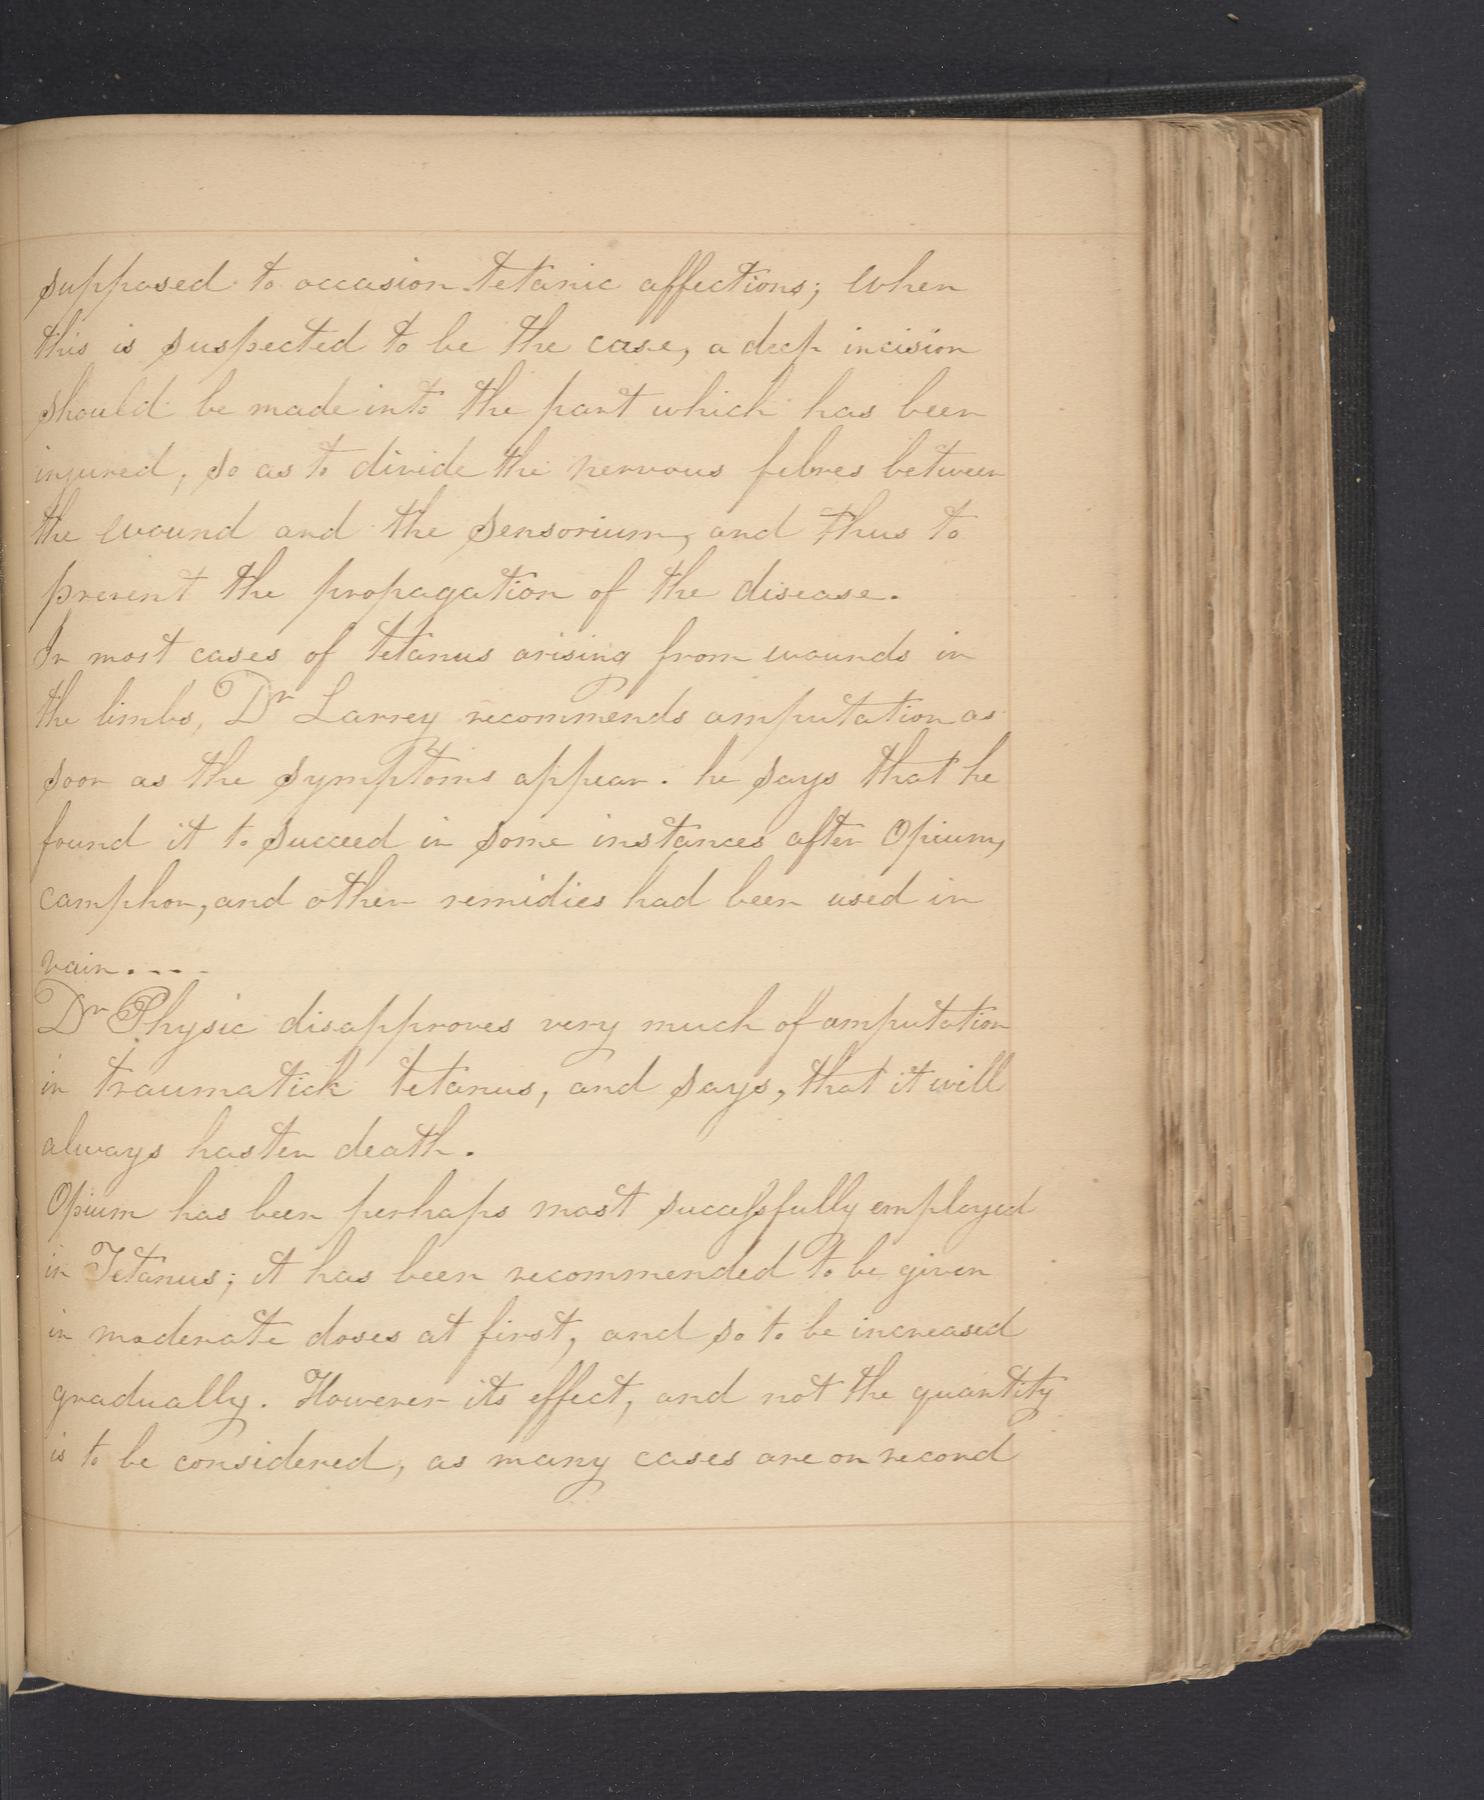 supposed to occasion tetanic affections; When
this is suspected to be the case, a deep incision
should be made into the part which has been
injured, so as to divide the nervous febres between
the wound and the sensorium, and thus to
prevent the propagation of the disease.
In most cases of tetanus arising from wounds in
the limbs, Dr Larrey recommends amputation as
soon as the symptoms appear. he says that he
found it to succeed in some instances after Opium,
camphor, and other remidies had been used in
vain....
Dr Physic disapproves very much of amputation
in traumatick tetanus, and says, that it will
always hasten death.
Opium has been perhaps most succeſsfully employed
in Tetanus; it has been recommended to be given
in moderate doses at first, and so to be increased
gradually. However its effect, and not the quantity
is to be considered, as many cases are on record